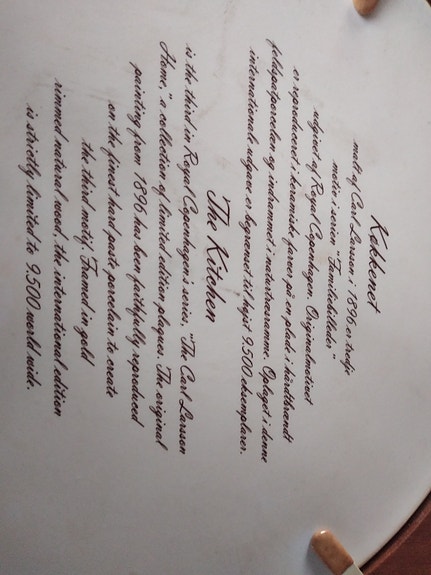 Køkkenet
malt af Carl Larsson i 1896 er tredje
motiv i serien "Familiebilleder"
udgivet af Royal Copenhagen. Originalmotivet
er reproduceret i keramiske farver på en plade i hårdtbrændt
feldspatporcelæn og indrammet i naturtræsramme. Oplaget i denne
internationale udgave er begrænset til højst 9.500 eksemplarer.
The Kitchen
is the third in Royal Copenhagen's series, "The Carl Larsson
Home," a collection of limited edition plaques. The original
painting from 1896 has been faithfully reproduced
on the finest hard paste porcelain to create
the third motif. Framed in gold
rimmed natural wood, the international edition
is strictly limited to 9,500 world wide.